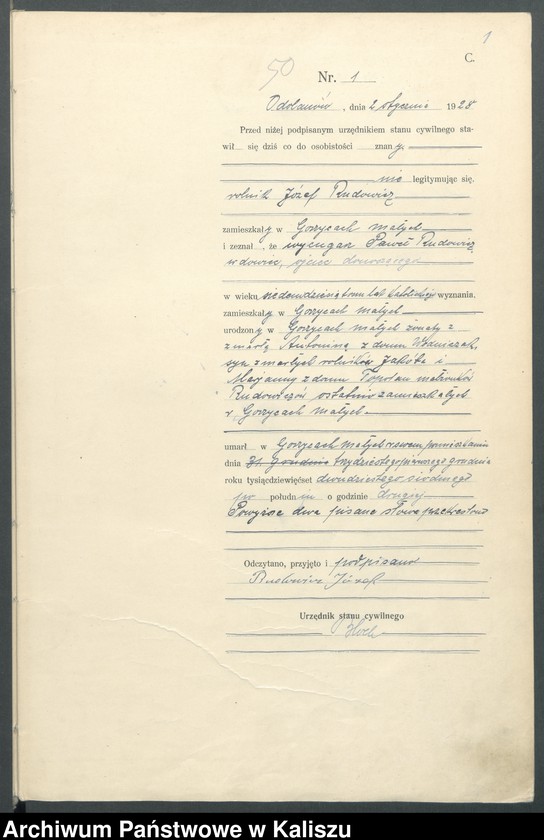 1
C.
50
Nr. 1
Odolanów, dnia 2 stycznia 1928
Przed niżej podpisanym urzędnikiem stanu cywilnego sta-
wił się dziś co do osobistości znany
nie legitymując się.
rolnik Józef Rudowicz
zamieszkały w Gorzycach małych
i zeznał, że wycugarz Paweł Rudowicz
wdowiec, ojciec donoszącego
w wieku siedemdziesiąt lat katolickiego wyznania,
zamieszkały w Gorzycach małych
urodzony w Gorzycach małych żonaty z
zmarłą Antoniną z domu
syn zmarłych rolników Jakóba i
Marjanny z domu Topolan małżonków
Rudowiczów ostatnio zamieszkałych
w Gorzycach małych
umarł w Gorzycach małych w swem pomieszkaniu
dnia 31. grudnia trzydziestego pierwszego grudnia
roku tysiącdziewięćset dwudziestego siódmego
po południu o godzinie drugiej
Powyżej dwa pisane słowa przekreślono
Odczytano, przyjęto i podpisano
Rudowicz Józef
Urzędnik stanu cywilnego
Archiwum Państwowe w Kaliszu